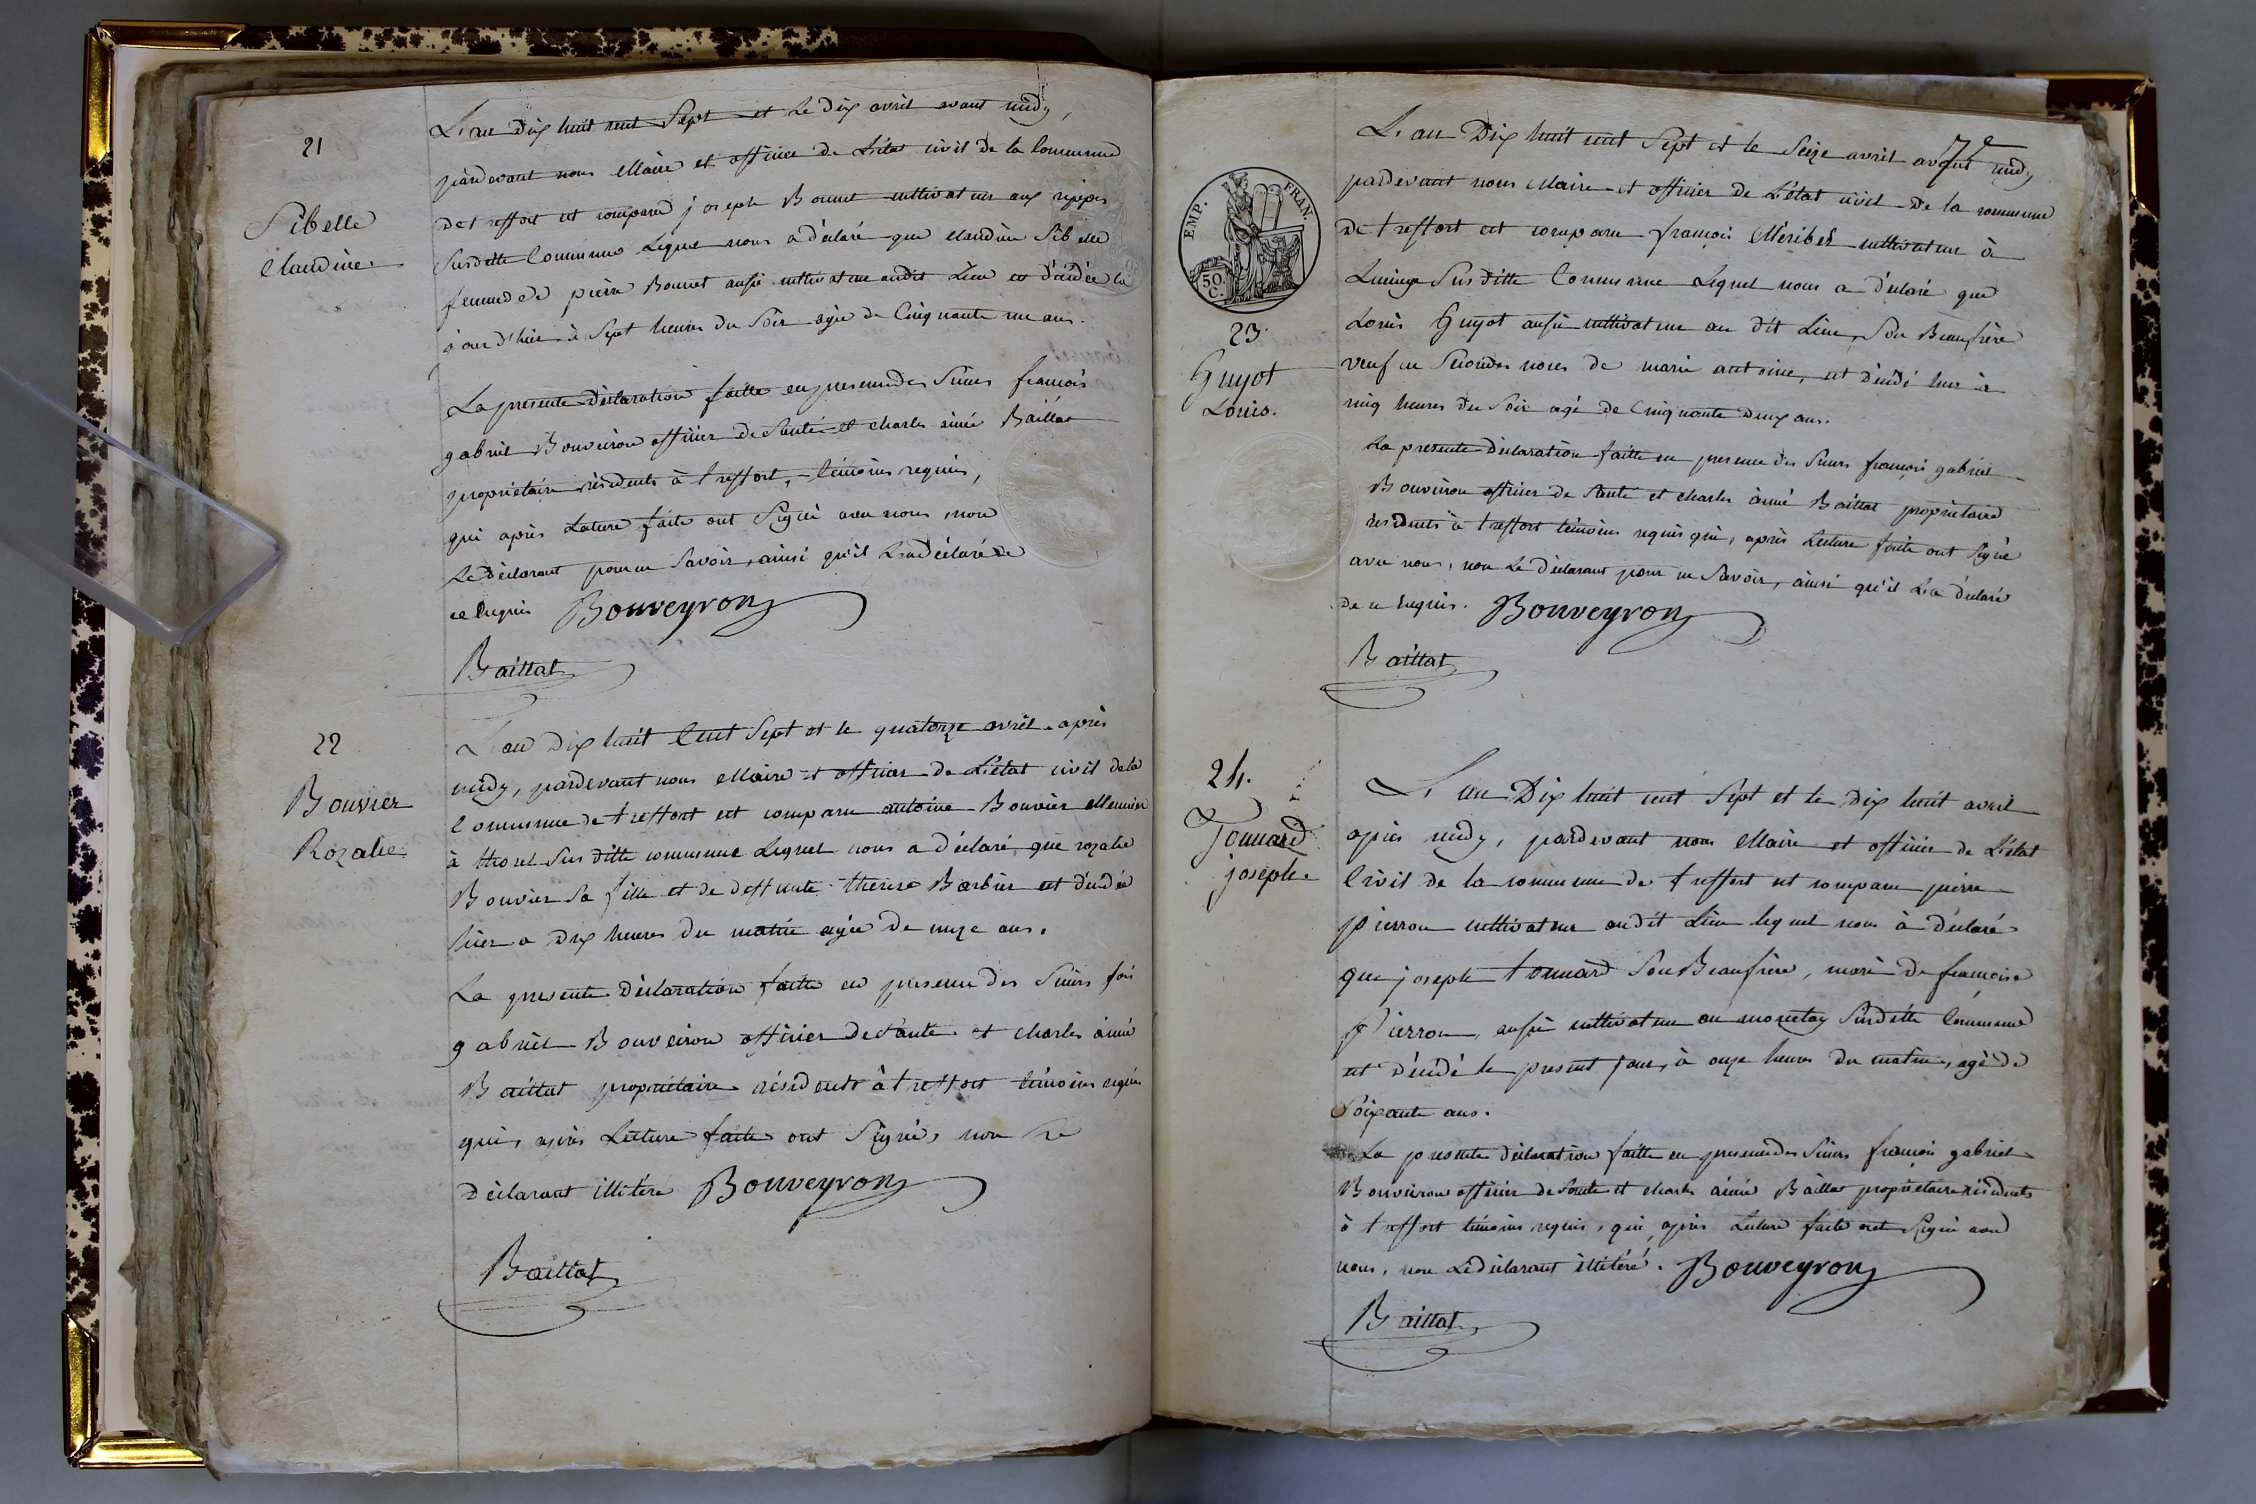 21
Sibelle
Claudine
L'an Dix huit cent Sept et Le dix avril avant midy,
pardevant nous Maire et officier de L'état civil de la Commune
de treffort est comparu joseph Bonnet cultivateur aux
Susditte Commune Lequel nous a déclaré que claudine Sibelle
femme de pierre Bonnet aussi cultivateur audit Lieu est décédée
à Sept heures du Soir agée de Cinquante ans.
La presente déclaration faitte en presence des Sieurs francois
gabriel Bouveiron officier de Santé et charles aimé Baillat
proprietaire résidents à treffort, témoins requis,
qui après Lecture faite ont Signé avec nous, non
Le déclarant pour ne Savoir, ainsi qu'il L'a déclaré de
ce Requis Bouveyron
Baillat
22
Bouvier
Rozalie
L'an Dix huit Cent Sept et le quatorze avril après
midy, pardevant nous Maire et officier de L'état civil de la
Commune de treffort est comparu antoine Bouvier Meunier
à Susditte commune Lequel nous a déclaré que rozalie
Bouvier Sa fille et de deffunte therese Barbier est décédée
hier a dix heures du matin agée de onze ans.
La presente déclaration faitte en presence des Sieurs fois
gabriel Bouveiron officier de Santé et charles aimé
Baillat proprietaire résidents à treffort témoins requis
qui, après Lecture faite ont Signé, non Le
déclarant illitéré Bouveyron
Baillat
7e
EMP. FRAN.
50 C.
23.
Guyot
Louis.
L'an Dix huit cent Sept et le Seize avril avant midy
pardevant nous Maire et officier de L'état civil de la commune
de treffort est comparu françois cultivateur à
Susditte Commune Lequel nous a déclaré que
Louis Guyot aussi cultivateur au dit Lieu, Son Beaufrère
veuf en Secondes noces de marie antoine, est décédé hier à
cinq heures du Soir agé de Cinquante deux ans.
La presente déclaration faitte en presence des Sieurs françois gabriel
Bouveiron officier de Santé et charles aimé Baillat proprietaire
résidents à treffort témoins requis qui, après Lecture faite ont Signé
avec nous, non Le déclarant pour ne Savoir, ainsi qu'il L'a déclaré
de ce Requis. Bouveyron
Baillat
24.
Tonnard
joseph
L'an Dix huit cent Sept et le Dix huit avril
après midy, pardevant nous Maire et officier de L'état
Civil de la commune de treffort est comparu pierre
pierron cultivateur audit Lieu lequel nous à déclaré
que joseph tonnard Son Beaufrère, mari de françoise
Pierron, aussi cultivateur au Susditte Commune
est décédé le present jour, à onze heures du matin, agé de
Soixante ans.
La presente déclaration faitte en presence des Sieurs françois gabriel
Bouveiron officier de Santé et charles aimé Baillat proprietaire résidents
à treffort témoins requis, qui, après Lecture faite ont Signé avec
nous, non Le déclarant illitéré. Bouveyron
Baillat